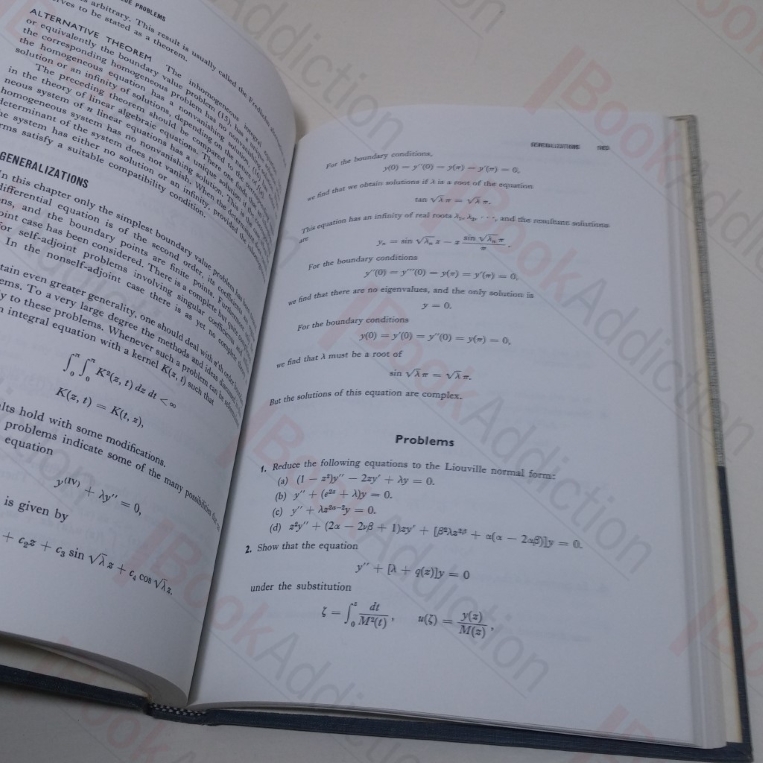 VE PROBLEMS
s arbitrary. This result is usually called the Fredholm
ves to be stated as a theorem.
ALTERNATIVE THEOREM The inhomogeneous integral
or equivalently the boundary value problem (15), has a
the corresponding homogeneous problem has no
the homogeneous equation has a nontrivial solution
solution or an infinity of solutions, depending on
The preceding theorem should be compared
in the theory of linear algebraic equations.
neous system of n linear equations has a unique solution if the
homogeneous system has no nonvanishing
determinant of the system does not vanish. When the
he system has either no solution or an infinity, provided the
rms satisfy a suitable compatibility condition.
GENERALIZATIONS
In this chapter only the simplest boundary value problem has
differential equation is of the second order, its
ns, and the boundary points are finite points.
oint case has been considered. There is a complete
for self-adjoint problems involving singular
In the nonself-adjoint case there is as yet no complete
tain even greater generality, one should deal with
ems. To a very large degree the methods and ideas
y to these problems. Whenever such a problem can be
n integral equation with a kernel K(x, t) such that
∫₀^π ∫₀^π K²(x, t) dx dt < ∞
K(x, t) = K(t, x),
lts hold with some modifications.
problems indicate some of the many possibilities
equation
y^(IV) + λy″ = 0,
is given by
+ c₂x + c₃ sin √λ x + c₄ cos √λ x.
GENERALIZATIONS
For the boundary conditions,
y(0) = y″(0) = y(π) = y′(π) = 0,
we find that we obtain solutions if λ is a root of the equation
tan √λ π = √λ π.
This equation has an infinity of real roots λ₁, λ₂, ···, and the resultant solutions
are
yₙ = sin √λₙ x − x sin √λₙ π / π.
For the boundary conditions
y″(0) = y‴(0) = y(π) = y′(π) = 0,
we find that there are no eigenvalues, and the only solution is
y = 0.
For the boundary conditions
y(0) = y′(0) = y″(0) = y(π) = 0,
we find that λ must be a root of
sin √λ π = √λ π.
But the solutions of this equation are complex.
Problems
1. Reduce the following equations to the Liouville normal form:
(a) (1 − x²)y″ − 2xy′ + λy = 0.
(b) y″ + (e²ˣ + λ)y = 0.
(c) y″ + λx²ᵅ⁻²y = 0.
(d) x²y″ + (2α − 2νβ + 1)xy′ + [β²λx²ᵝ + α(α − 2νβ)]y = 0.
2. Show that the equation
y″ + [λ + q(x)]y = 0
under the substitution
ζ = ∫₀ˣ dt / M²(t), u(ζ) = y(x) / M(x),